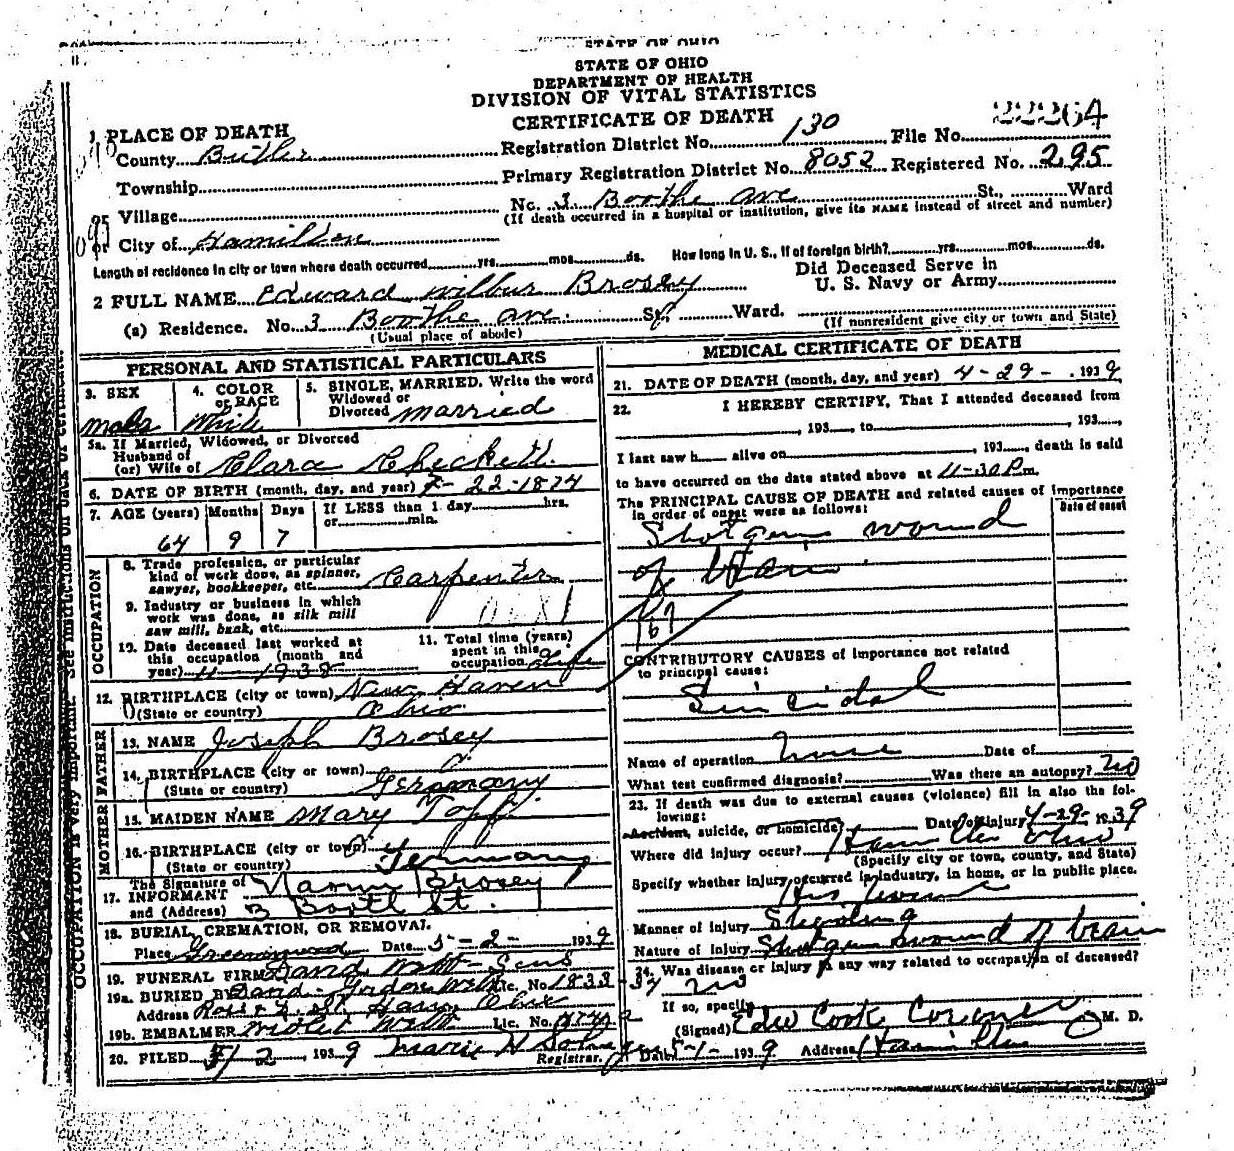 STATE OF OHIO
STATE OF OHIO
DEPARTMENT OF HEALTH
DIVISION OF VITAL STATISTICS
CERTIFICATE OF DEATH
1 PLACE OF DEATH
Registration District No. 130 File No. 22264
County Butler
Primary Registration District No. 8052 Registered No. 295
Township
No. 3 Boothe Ave St., Ward
or Village
(If death occurred in a hospital or institution, give its NAME instead of street and number)
or City of Hamilton
Length of residence in city or town where death occurred yrs. mos. ds. How long in U. S., if of foreign birth? yrs. mos. ds.
2 FULL NAME Edward Wilbur Brosey
Did Deceased Serve in
U. S. Navy or Army
(a) Residence. No. 3 Boothe Ave. St. Ward.
(Usual place of abode)
(If nonresident give city or town and State)
PERSONAL AND STATISTICAL PARTICULARS
3. SEX
male
4. COLOR or RACE
White
5. SINGLE, MARRIED, Write the word
Widowed or
Divorced married
5a. If Married, Widowed, or Divorced
Husband of
(or) Wife of Clara
6. DATE OF BIRTH (month, day, and year) 7-22-1874
7. AGE (years) Months Days If LESS than 1 day hrs.
or min.
64 9 7
OCCUPATION
8. Trade profession, or particular
kind of work done, as spinner,
sawyer, bookkeeper, etc. Carpenter
9. Industry or business in which
work was done, as silk mill
saw mill, bank, etc.
10. Date deceased last worked at
this occupation (month and
year) 11-1938
11. Total time (years)
spent in this
occupation life
12. BIRTHPLACE (city or town) New Haven
(State or country) Ohio
FATHER
13. NAME Joseph Brosey
14. BIRTHPLACE (city or town)
(State or country) Germany
MOTHER
15. MAIDEN NAME Mary Topf
16. BIRTHPLACE (city or town)
(State or country) Germany
The Signature of
17. INFORMANT Naomi Brosey
and (Address) 3 Booth St.
18. BURIAL, CREMATION, OR REMOVAL
Place Greenwood Date 5-2- 1939
19. FUNERAL FIRM David Webb Sons
19a. BURIED BY David Gordon Webb Lic. No. 1833
Address Ross & D. St. Ham. Ohio
19b. EMBALMER Webb Lic. No.
20. FILED 5/2, 1939 Marie H
Registrar.
MEDICAL CERTIFICATE OF DEATH
21. DATE OF DEATH (month, day, and year) 4-29-, 1939
22. I HEREBY CERTIFY, That I attended deceased from
, 193 , to , 193 ,
I last saw h alive on , 193 , death is said
to have occurred on the date stated above at 11-30 P.m.
The PRINCIPAL CAUSE OF DEATH and related causes of importance
in order of onset were as follows:
Date of onset
Shotgun wound
of brain
167
CONTRIBUTORY CAUSES of importance not related
to principal cause:
Suicidal
Name of operation None Date of
What test confirmed diagnosis? Was there an autopsy? No
23. If death was due to external causes (violence) fill in also the following:
Accident, suicide, or homicide Date of injury 4-29-1939
Where did injury occur? Hamilton Ohio
(Specify city or town, county, and State)
Specify whether injury occurred in industry, in home, or in public place.
His home
Manner of injury Shooting
Nature of injury Shotgun wound of brain
24. Was disease or injury in any way related to occupation of deceased?
No
If so, specify
(Signed) Edw Cook Coroner M. D.
Date 5-1-1939 Address Hamilton
OCCUPATION is very important. See instructions on back of certificate.